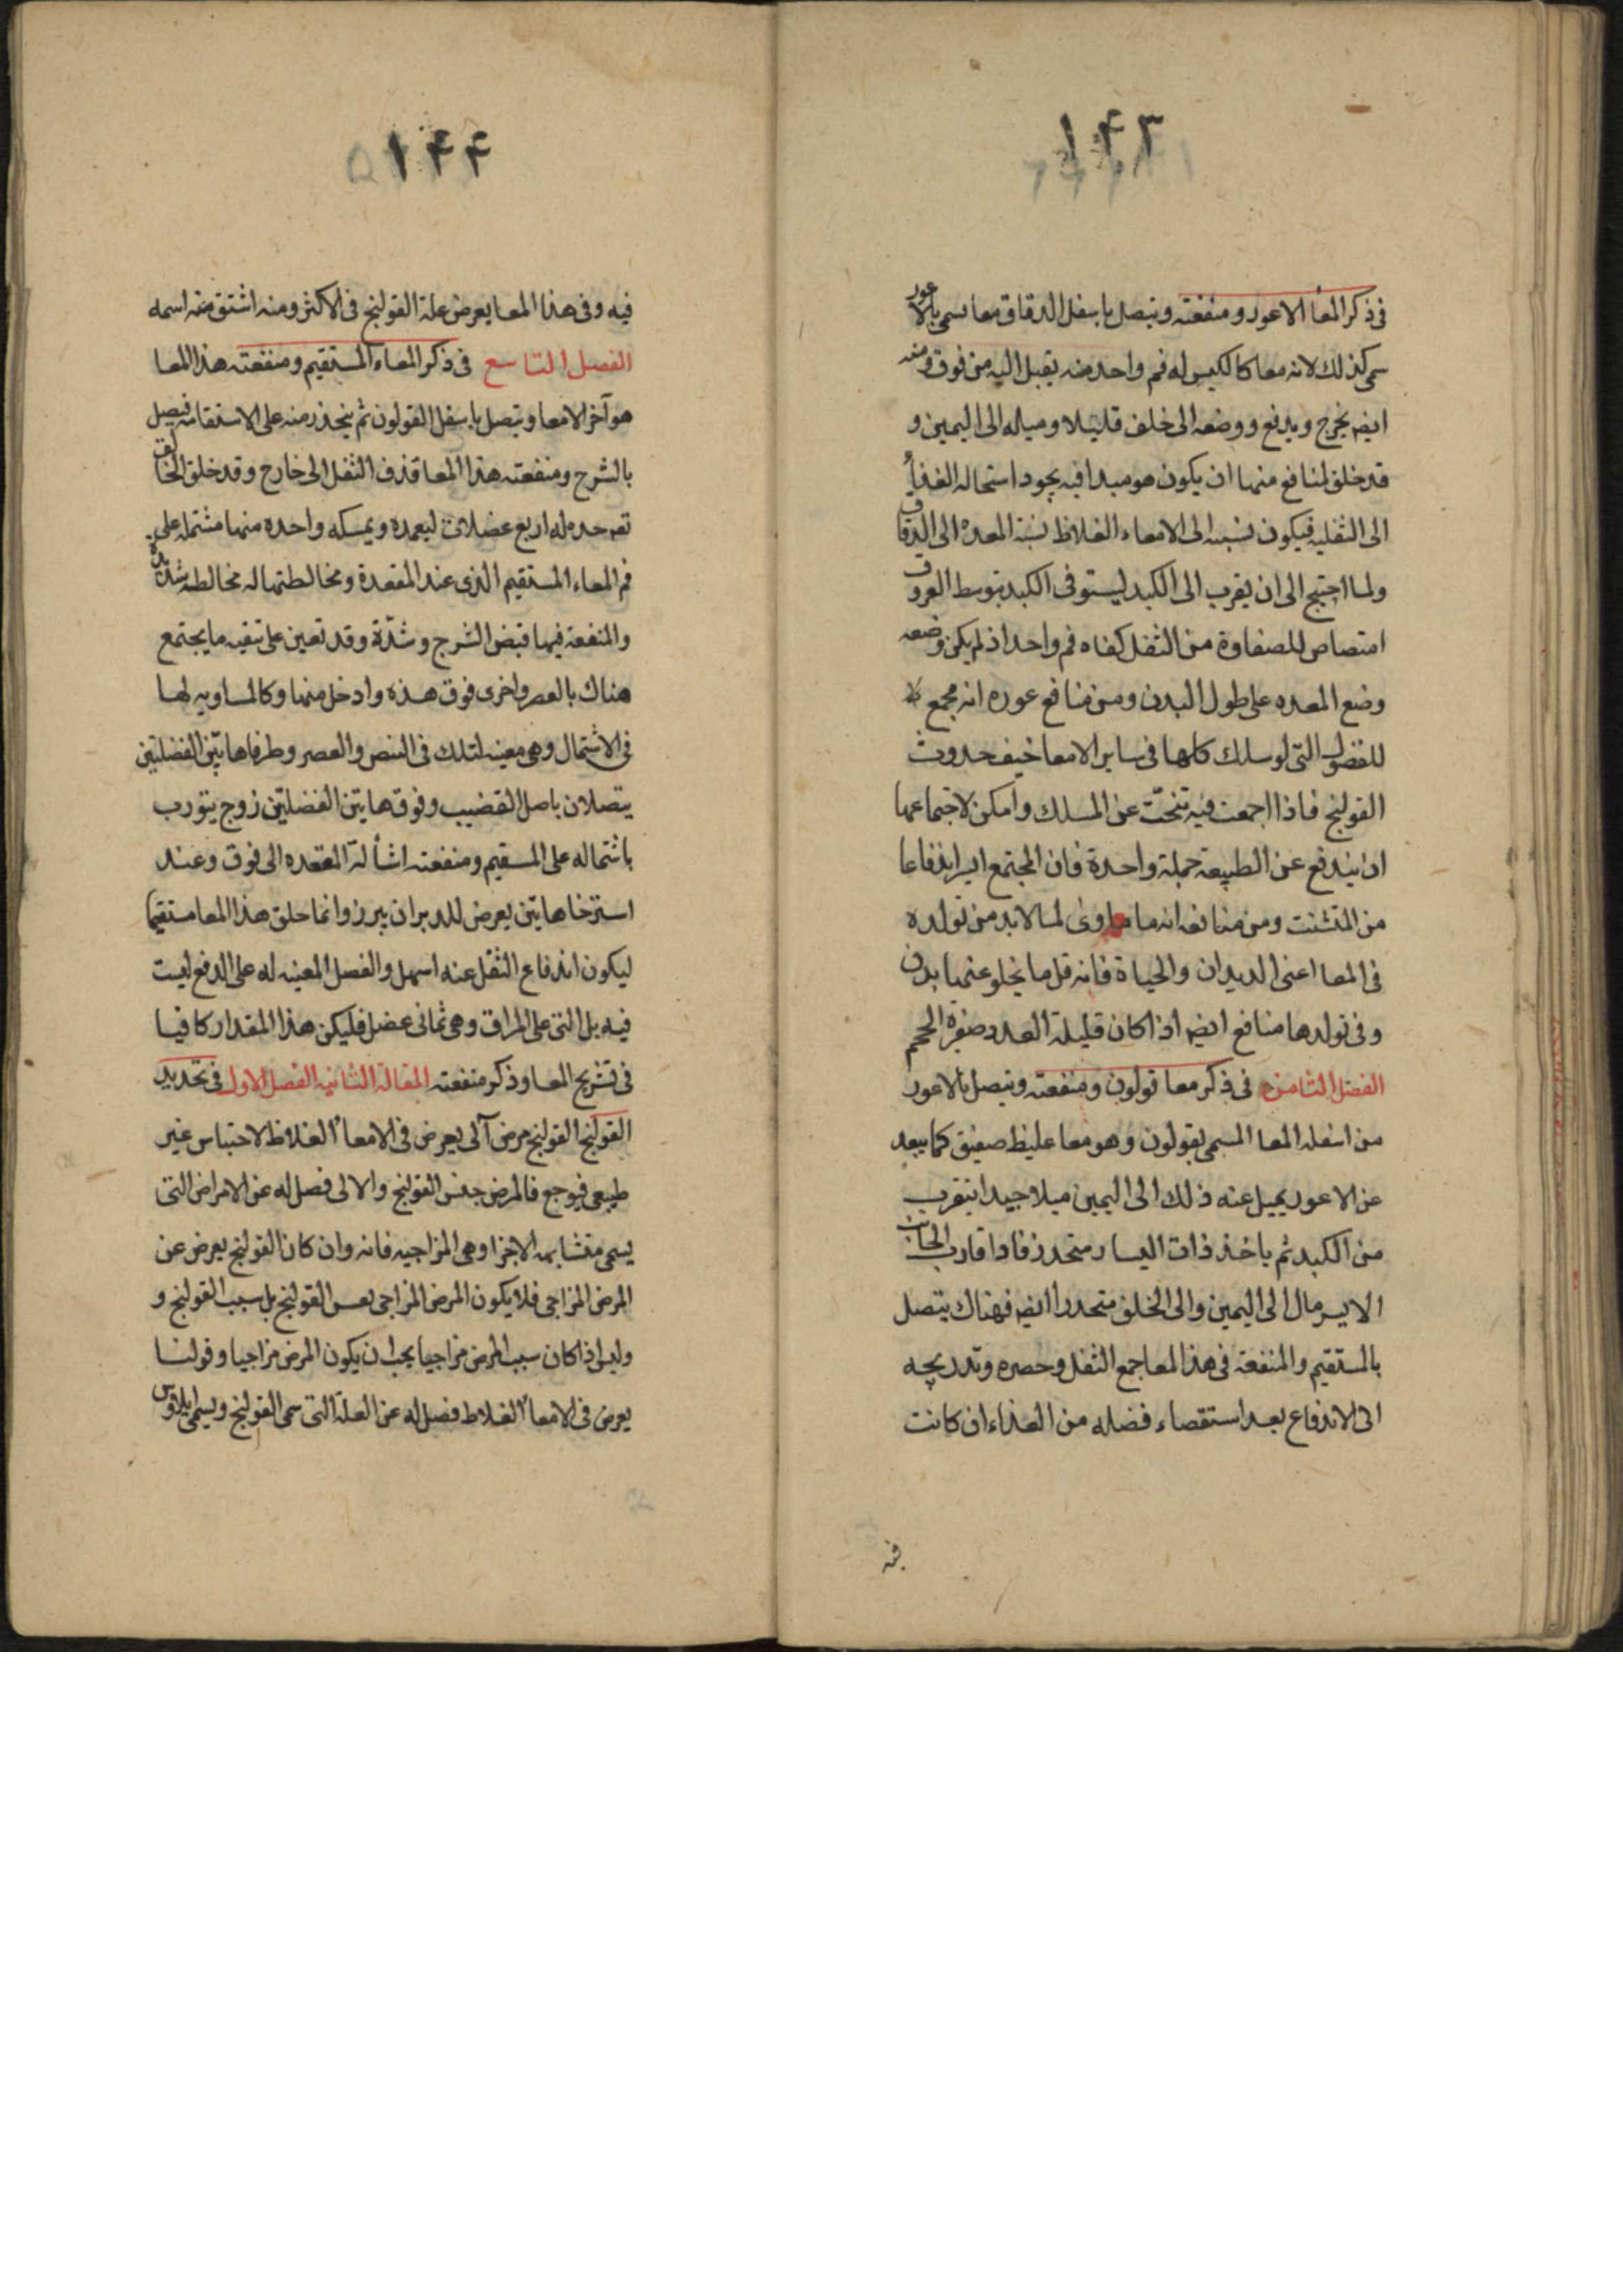 ١۴٣
في ذكر المعا الاعور ومنفعته ويتصل باسفل الدقاق معا يسمى بالاعور
سمى كذلك لانه معا كالكيس له فم واحد منه يقبل اليه من فوق ومنه
ايضه يخرج ويدفع ووضعه الى خلف قليلا وميله الى اليمين و
قد خلق لمنافع منها ان يكون هو مبدا فيه يجود استحاله الغذاء
الى الثفليه فيكون نسبته الى الامعاء الغلاظ نسبة المعده الى الدقاق
ولما احتيج الى ان يقرب الى الكبد ليستوفى الكبد بتوسط العروق
امتصاص للصفاوة من الثفل كفاه فم واحد اذ لم يكن وضعه
وضع المعده على طول البدن ومن منافع عوره انه مجمع
للفضول التى لو سلك كلها فى ساير الامعا خيف حدوث
القولنج فاذا اجمعت فيه تنحّت عن المسلك وامكن لاجتماعها
ان يندفع عن الطبيعة جملة واحدة فان المجتمع ايسر اندفاعا
من المتشتت ومن منافعه انه ماوى لما لابد من تولده
فى المعا اعنى الديدان والحياة فانه قل ما يخلو عنها بدن
وفى تولدها منافع ايضه اذا كان قليلة العدد صغيرة الحجم
الفصل الثامن فى ذكر معا قولون ومنفعته ويتصل بالاعور
من اسفله المعا المسمى بقولون وهو معا غليظ صفيق كما يبعد
عن الاعور يميل عنه ذلك الى اليمين ميلا جيدا ليقرب
من الكبد ثم ياخذ ذات اليسار منحدر فاذا قارب الجانب
الايسر مال الى اليمين والى الخلف منحدرا ايضه فهناك يتصل
بالمستقيم والمنفعة فى هذا المعا جمع الثفل وحصره وتدريجه
الى الاندفاع بعد استقصاء فضله من الغذاء ان كانت
فيه
١۴۴
فيه وفى هذا المعا يعرض علة القولنج فى الاكثر ومنه اشتق منه اسمه
الفصل التاسع فى ذكر المعاء المستقيم ومنفعته هذا المعا
هو آخر الامعا ويتصل باسفل القولون ثم ينحدر منه على الاستقامه فيصل
بالشرج ومنفعته هذا المعا قذف الثفل الى خارج وقد خلق الخالق
تعه حده له اربع عضلات ليعمده ويمسكه واحده منها مشتمله على
فم المعاء المستقيم الذى عند المقعدة ومخالطتها له مخالطه شديدة
والمنفعة فيها قبض الشرج وشدّة وقد تعين على تنقيه ما يجتمع
هناك بالعصر واخرى فوق هذه وادخل منها وكالمساويه لها
فى الاشتمال وهى معينه لتلك فى القبض والعصر وطرفاها تين الفضلتين
يتصلان باصل القضيب وفوق هاتين الفضلتين زوج يتورب
باشتماله على المسقيم ومنفعته اشألة المقعده الى فوق وعند
استرخا هاتين يعرض للدبر ان يبرز وانما خلق هذا المعا مستقيما
ليكون اندفاع الثفل عنه اسهل والفصل المعينه له على الدفع ليست
فيه بل التى على المراق وهى ثمانى عضل فليكن هذا المقدار كافيا
فى تشريح المعا وذكر منفعته المقالة الثانيه الفصل الاول فى تحديد
القولنج القولنج مرض آلى يعرض فى الامعاء الغلاظ لاحتباس غير
طبيعى فيوجع فالمرض جنس القولنج والالى فصل له عن الامراض التى
يسمى متشابهه الاجزا وهى المزاجيه فانه وان كان القولنج يعرض عن
المرض المزاجى فلا يكون المرض المزاجى نفس القولنج بل سبب القولنج و
وليس اذا كان سبب المرض مزاجيا يجب ان يكون المرض مزاجيا وقولنا
يعرض فى الامعاء الغلاظ فصل له عن العلة التى سمى القولنج ويسمى ايلاوس